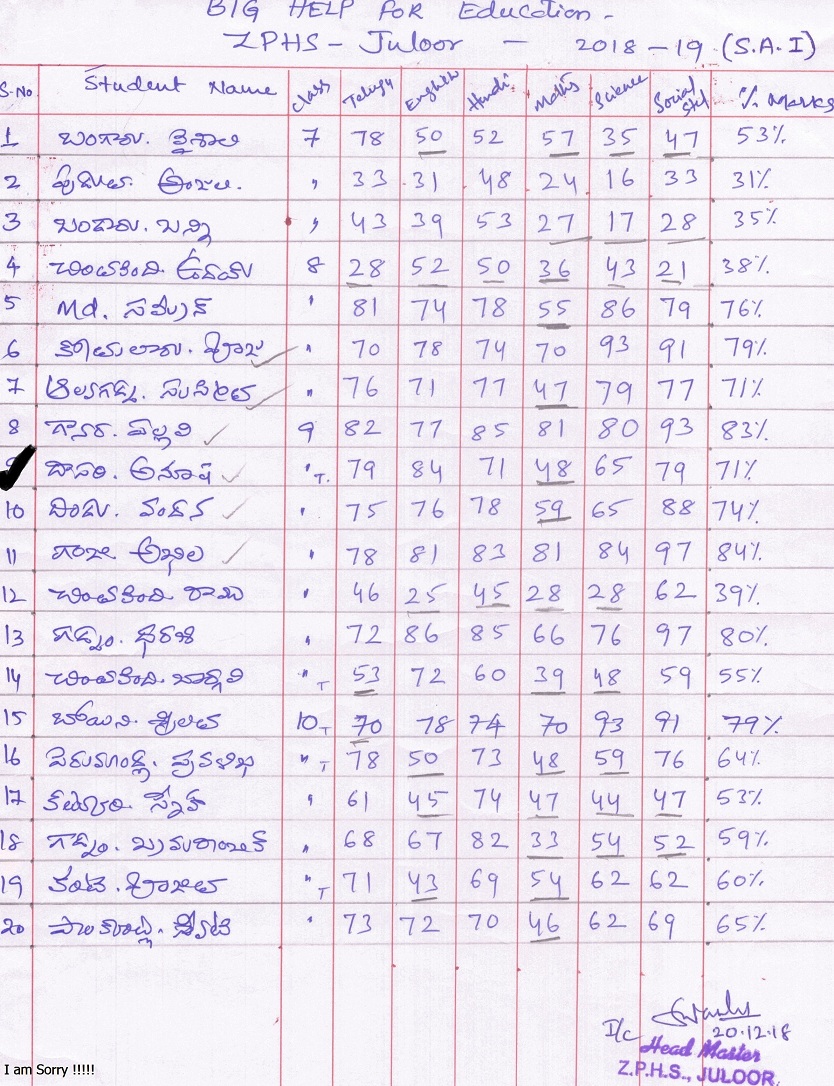 BIG HELP FOR Education -
ZPHS - Juloor - 2018-19 (S.A.I)
S.No Student Name Class Telugu English Hindi Maths Science Social Std % Marks
1 బంగారు. వైశాలి 7 78 50 52 57 35 47 53%
2 అంజలి. " 33 31 48 24 16 33 31%
3 బండారు. బన్ని " 43 39 53 27 17 28 35%
4 చింతకింది. ఉదయ్ 8 28 52 50 36 43 21 38%
5 Md. సమీర్ " 81 74 78 55 86 79 76%
6 " 70 78 74 70 93 91 79%
7 " 76 71 77 47 79 77 71%
8 పల్లవి 9 82 77 85 81 80 93 83%
9 దాసరి. అనూష " T. 79 84 71 48 65 79 71%
10 దిండు. వందన " 75 76 78 59 65 88 74%
11 గంజి అఖిల " 78 81 83 81 84 97 84%
12 చింతకింది రాము " 46 25 45 28 28 62 39%
13 గడ్డం. ధరణి " 72 86 85 66 76 97 80%
14 చింతకింది. భార్గవి " T 53 72 60 39 48 59 55%
15 బోయిని. శ్రీలత 10 T 70 78 74 70 93 91 79%
16 " T 78 50 73 48 59 76 64%
17 " 61 45 74 47 44 47 53%
18 గడ్డం. " 68 67 82 33 54 52 59%
19 " T 71 43 69 54 62 62 60%
20 " 73 72 70 46 62 69 65%
I/c
20.12.18
Head Master
Z.P.H.S., JULOOR.
I am Sorry !!!!!